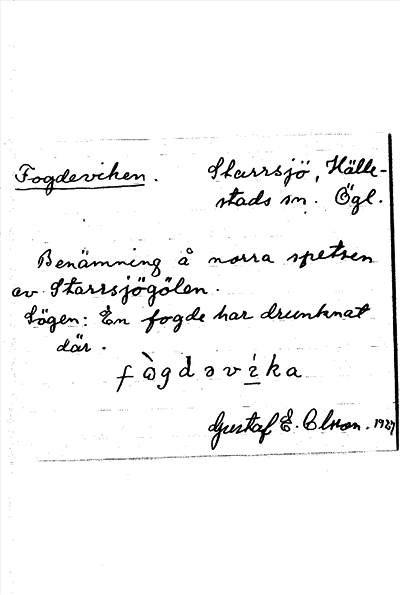 Fogdeviken. Starrsjö, Hälle-
stads sn. Ögl.
Benämning å norra spetsen
av Starrsjögölen.
Sägen: En fogde har drunknat
där.
fὼgdəvi̲ka
Gustaf E. Olsson. 1927